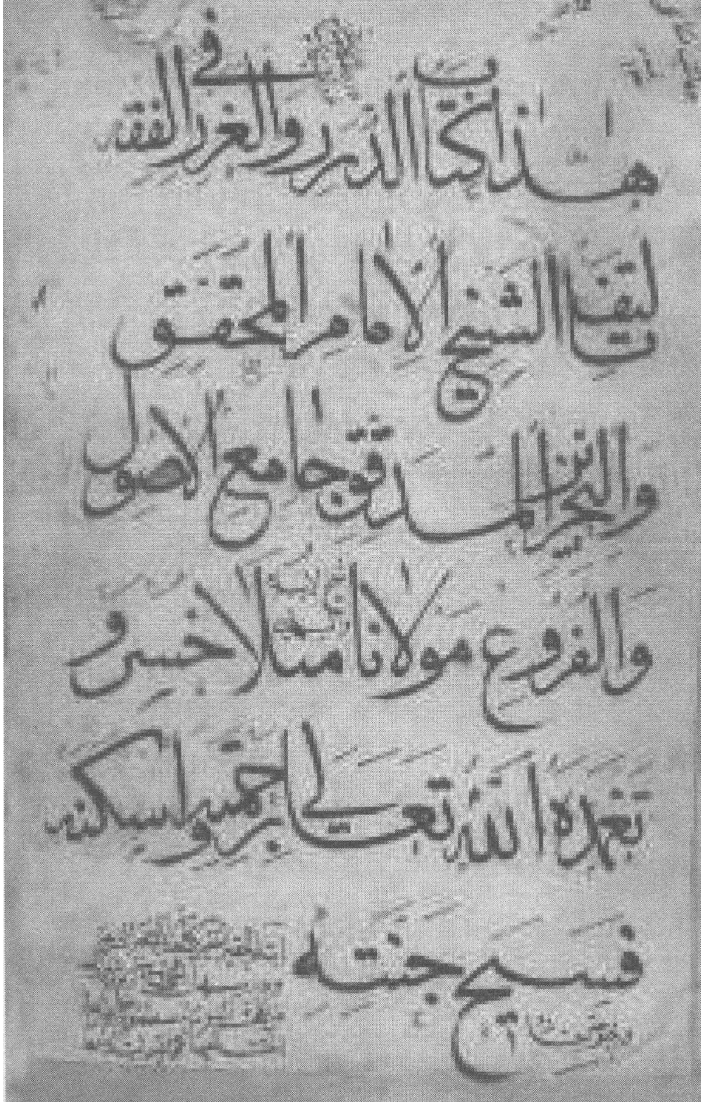 هذا كتاب الدرر والغرر في الفقه
تاليف الشيخ الامام المحقق
والنحرير المدقق جامع الاصول
والفروع مولانا منلا خسرو
تغمده الله تعالى برحمته واسكنه
فسيح جنته